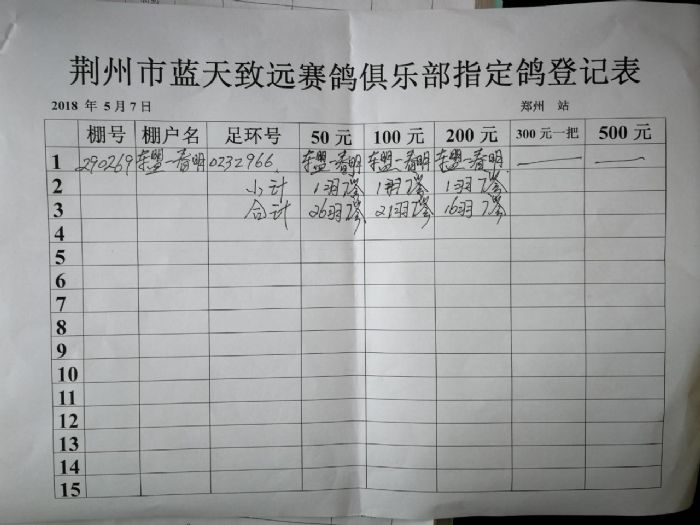 荆州市蓝天致远赛鸽俱乐部指定鸽登记表
2018 年 5 月 7 日 郑州 站
棚号 棚户名 足环号 50 元 100 元 200 元 300 元一把 500 元
1 290269 东盟一春明 0232966 东盟一春明 东盟一春明 东盟一春明
2 小计 1羽 1羽 1羽
3 合计 26羽 21羽 16羽
4
5
6
7
8
9
10
11
12
13
14
15